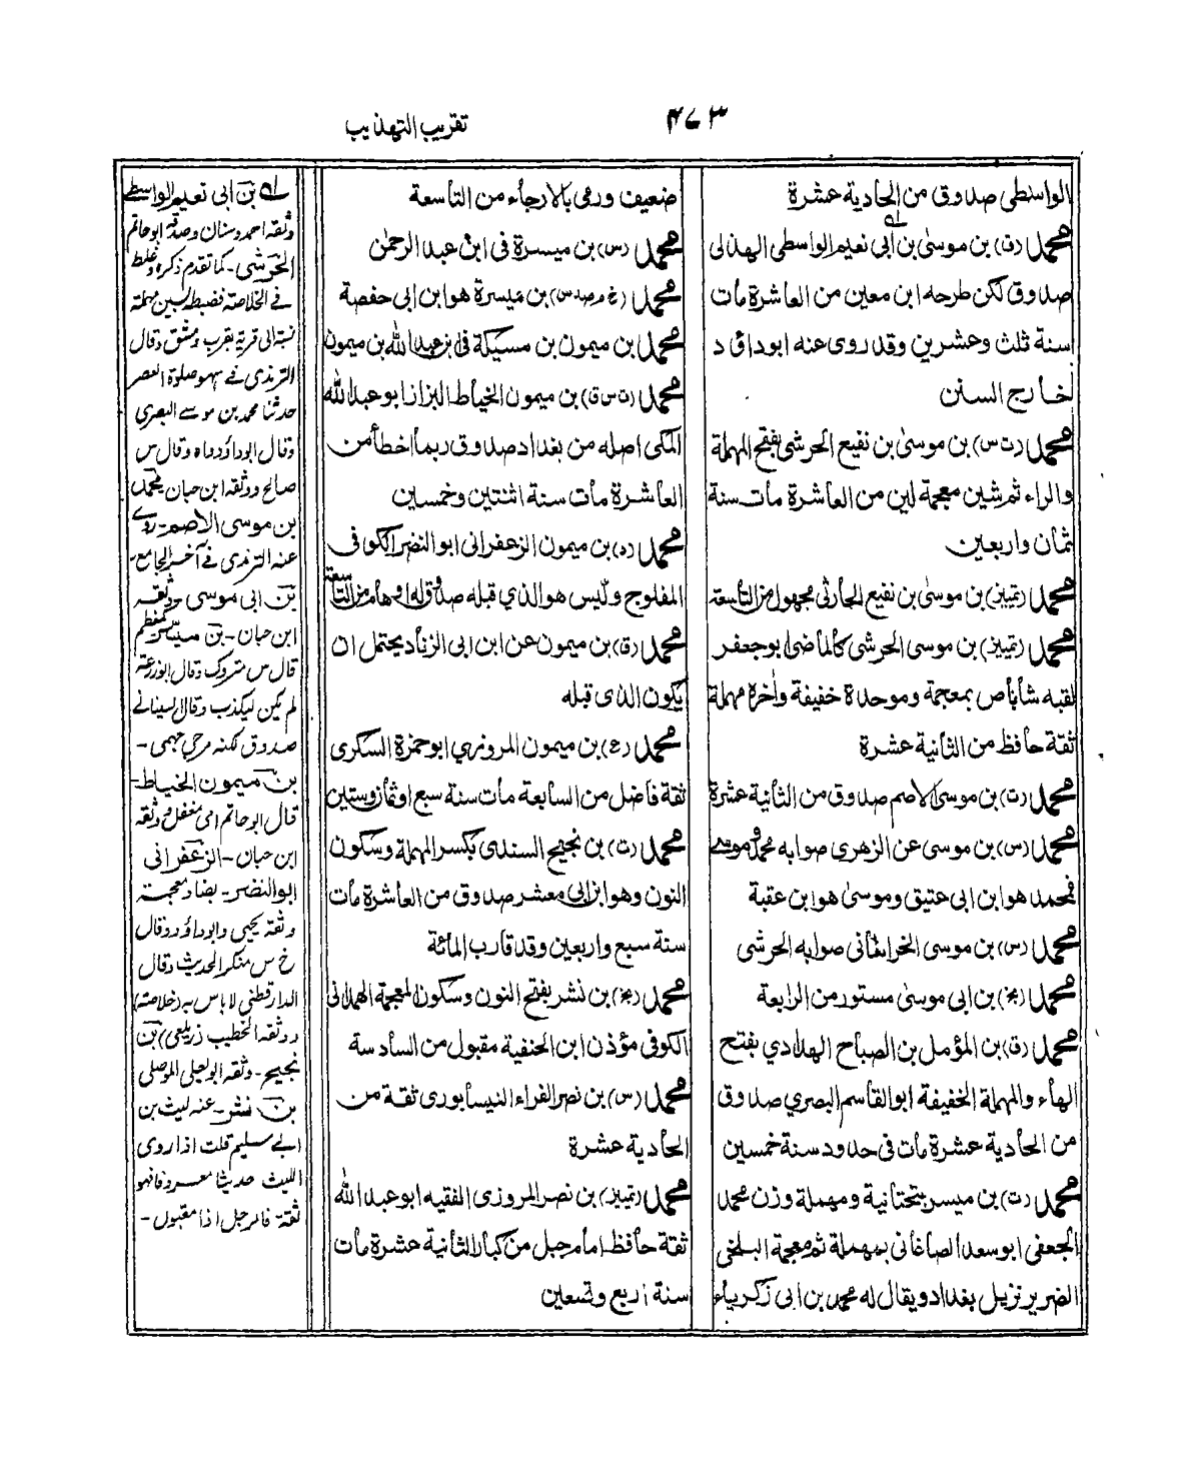 ٤٧٣
تقريب التهذيب
الواسطى صدوق من الحادية عشرة
محمد (ق) بن موسىٰ بن ابى نعيم الواسطى الهذلى
صدوق لكن طرحه ابن معين من العاشرة مات
سنة ثلث وعشرين وقد روى عنه ابوداؤد
خارج السنن
محمد (ت س) بن موسىٰ بن نفيع الحرشى بفتح المهملة
والراء ثم شين معجمة لين من العاشرة مات سنة
ثمان واربعين
محمد (تمييز) بن موسىٰ بن نفيع الحارثى مجهول من التاسعة
محمد (تمييز) بن موسى الحرشى كالماضى ابو جعفر
لقبه شاباص بمعجمة وموحدة خفيفة واٰخرة مهملة
ثقة حافظ من الثانية عشرة
محمد (ت) بن موسى الاصم صدوق من الثانية عشرة
محمد (س) بن موسى عن الزهرى صوابه محمد وموسى
فمحمد هو ابن ابى عتيق وموسىٰ هو ابن عقبة
محمد (س) بن موسى الخراسانى صوابه الحرشى
محمد (بخ) بن ابى موسىٰ مستور من الرابعة
محمد (ق) بن المؤمل بن الصباح الهدادي بفتح
الهاء والمهملة الخفيفة ابو القاسم البصري صدوق
من الحادية عشرة مات فى حدود سنة خمسين
محمد (ت) بن ميسر بتحتانية ومهملة وزن محمد
الجعفى ابو سعد الصاغانى بمهملة ثم معجمة البلخى
الضرير نزيل بغداد ويقال له محمد بن ابى زكرياء
ضعيف ورمى بالارجاء من التاسعة
محمد (س) بن ميسرة فى ابن عبد الرحمٰن
محمد (خ م مد س) بن ميسرة هو ابن ابى حفصة
محمد بن ميمون بن مسيكة فى ابن عبد الله بن ميمون
محمد (ت س ق) بن ميمون الخياط البزاز ابو عبد الله
المكى اصله من بغداد صدوق ربما اخطأ من
العاشرة مات سنة اثنتين وخمسين
محمد (د) بن ميمون الزعفرانى ابو النضر الكوفى
المفلوج وليس هو الذي قبله صدوق له اوهام من التاسعة
محمد (ق) بن ميمون عن ابن ابى الزناد يحتمل ان
يكون الذى قبله
محمد (ع) بن ميمون المروزي ابو حمزة السكرى
ثقة فاضل من السابعة مات سنة سبع او ثمان وستين
محمد (ت) بن نجيح السندى بكسر المهملة وسكون
النون وهو ابن ابى معشر صدوق من العاشرة مات
سنة سبع واربعين وقد قارب المائة
محمد (بخ) بن نشر بفتح النون وسكون المعجمة الهمدانى
الكوفى مؤذن ابن الحنفية مقبول من السادسة
محمد (س) بن نصر الفراء النيسابورى ثقة من
الحادية عشرة
محمد (تمييز) بن نصر المروزى الفقيه ابو عبد الله
ثقة حافظ امام جبل من كبار الثانية عشرة مات
سنة اربع وتسعين
له بن ابى نعيم الواسطى
وثقه احمد وسنان وصدقه ابو حاتم
الحرشى - كما تقدم ذكره وغلط
فى الخلاصة فضبطه بسين مهملة
نسبة الى قرية بقرب دمشق وقال
الترمذى فى سهو صلوة العصر
حدثنا محمد بن موسى البصرى
وقال ابو داؤد وهاه وقال س
صالح ووثقه ابن حبان محمد
بن موسى الاصم - روى
عنه الترمذى فى آخر الجامع -
بن ابى موسى - وثقه
ابن حبان - بن ميسر كمعظم
قال س متروك وقال ابو زرعة
لم يكن ليكذب وقال السينانى
صدوق لكنه مرجئ جهمى -
بن ميمون الخياط -
قال ابو حاتم امى مغفل ووثقه
ابن حبان - الزعفرانى
ابو النضر - بضاد معجمة
وثقه يحيى وابو داؤد وقال
خ س منكر الحديث وقال
الدارقطنى لا باس به (خلاصة)
ووثقه الخطيب زيلعى) بن
نجيح - وثقه ابو يعلى الموصلى
بن نشر - عنه ليث بن
ابى سليم قلت اذا روى
الليث حديثا معروفا فهو
ثقة فالرجل اذا مقبول -